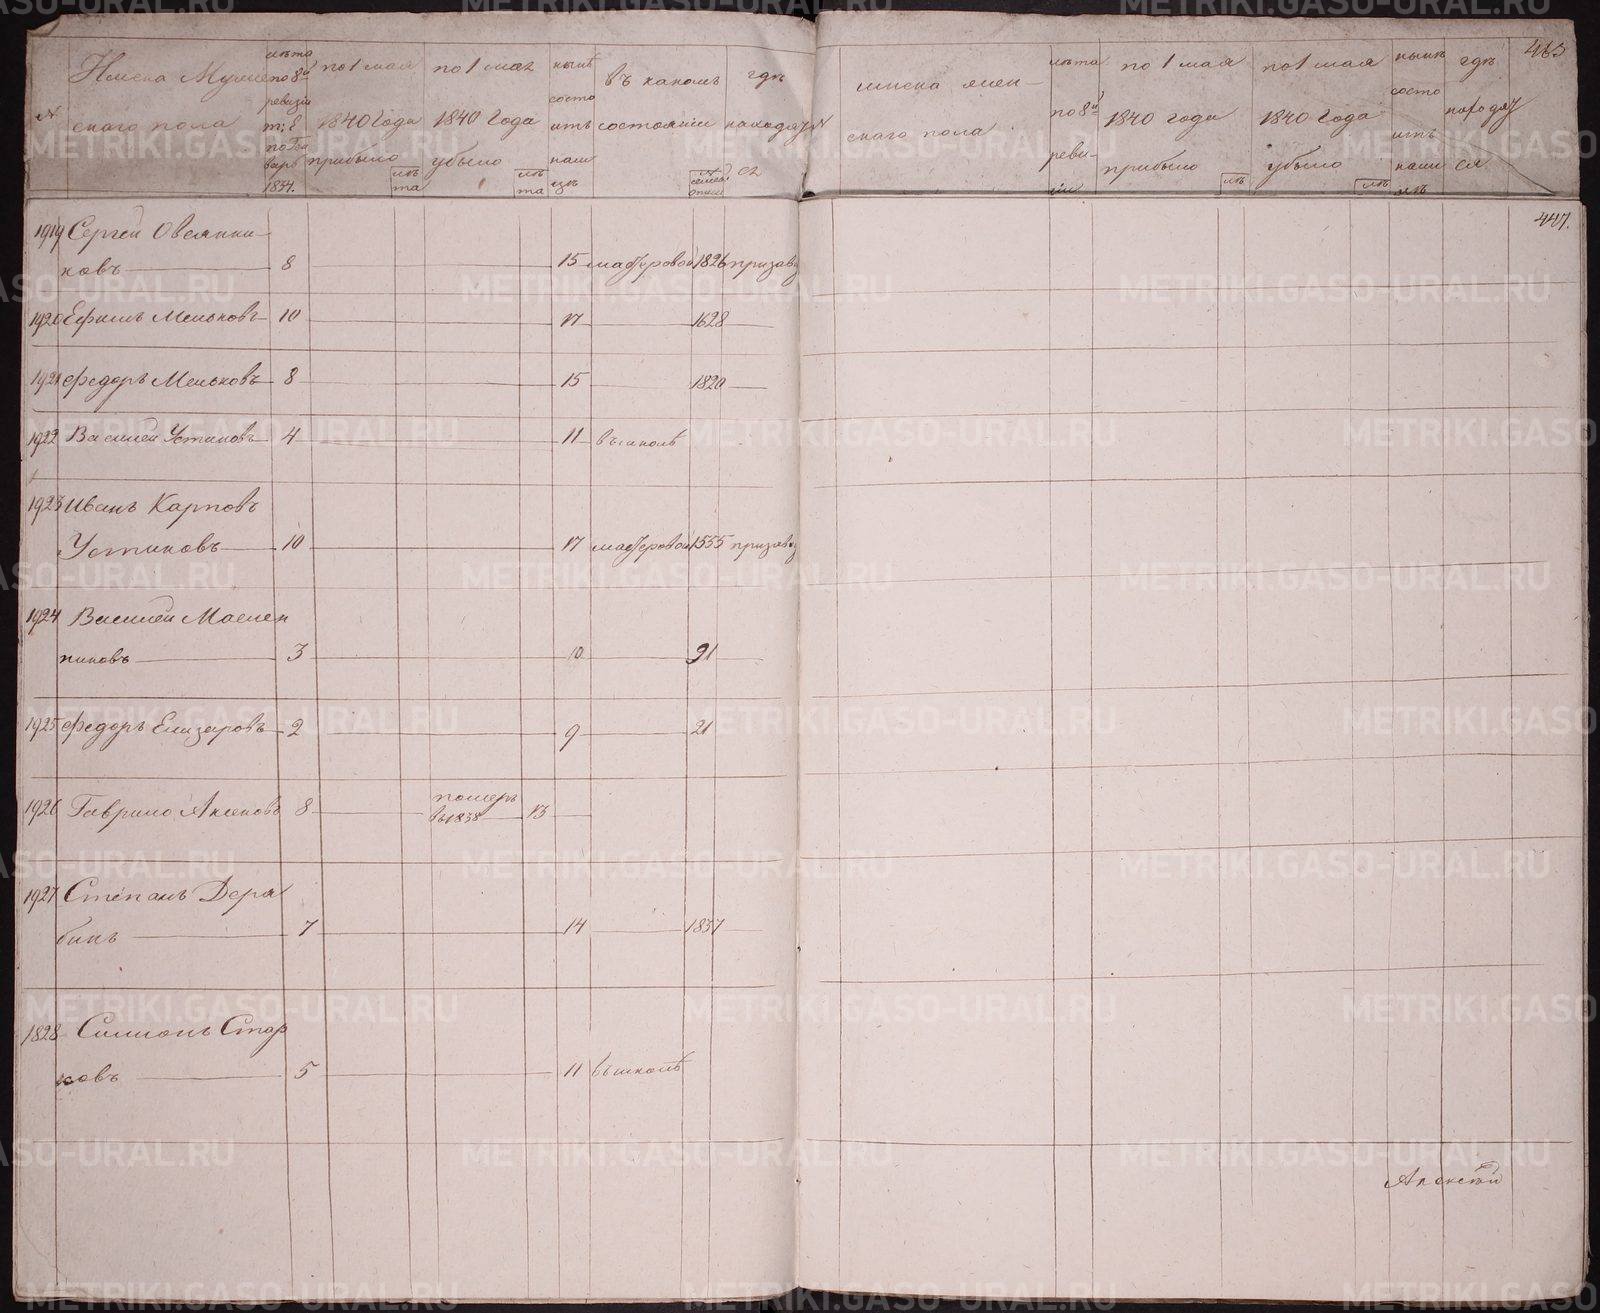 №
Имена Мужес
скаго пола
лѣта
по 8й
ревизіи
по 1 мая
1840 Года
прибыло
лѣ
та
по 1 мая
1840 Года
убыло
лѣ
та
нынѣ
состо
итъ
нали
цѣ
въ какомъ
состояніи
№
гдѣ
находят
ся
№
имена жен-
скаго пола
лѣта
по 8й
реви-
зіи
по 1 мая
1840 года
прибыло
лѣ
по 1 мая
1840 Года
убыло
лѣ
нынѣ
состо
итъ
нали
цѣ
гдѣ
находят
ся
463
447.
1919 Сергей Овсянни-
ковъ 8 15 мастеровой 1826 призавод
1920 Ефимъ Меньковъ 10 17 1628
1921 Федоръ Меньковъ 8 15 1820
1922 Василей Устиновъ 4 11 въшколѣ
1923 Иванъ Карповъ
Устиновъ 10 17 мастеровой 1555 призавод
1924 Василей Маслен
никовъ 3 10 91
1925 Федоръ Елизаровъ 2 9 21
1926 Гаврило Аксеновъ 8 померъ
въ 1838 13
1927 Степанъ Деря
бинъ 7 14 1837
1828 Симионъ Стар
ковъ 5 11 въшколѣ
Алексѣй
METRIKI.GASO-URAL.RU